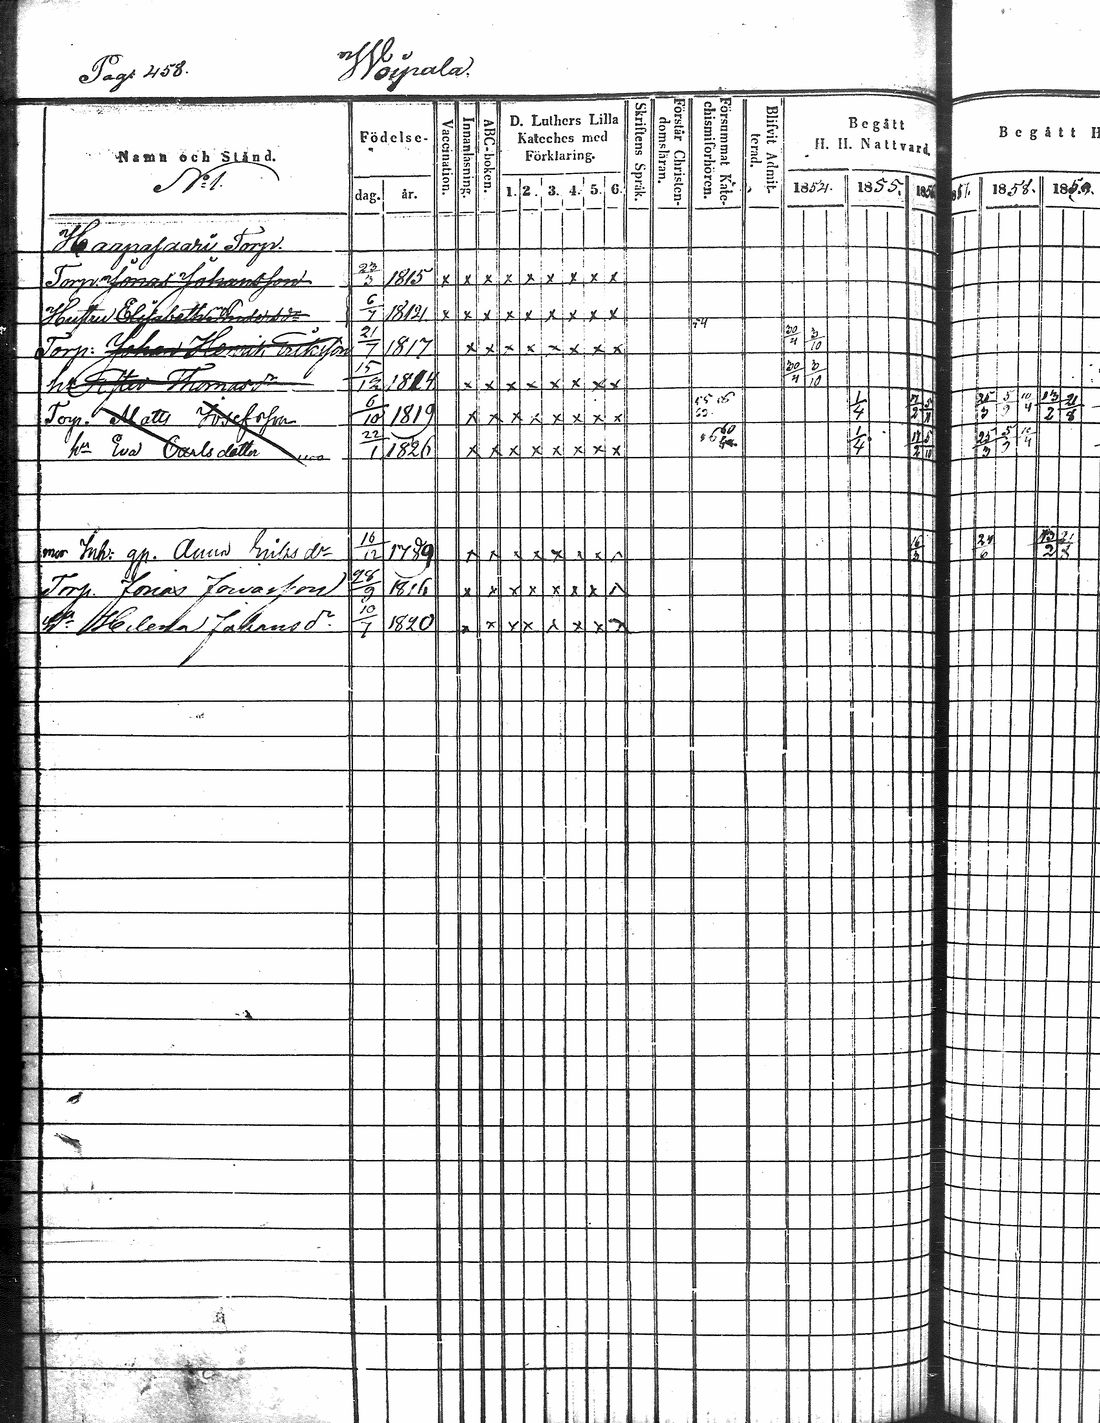 Pag: 458.
Woipala.
Namn och Stånd.
No 1.
Födelse-
dag. år.
Vaccination.
Innanläsning.
ABC-boken.
D. Luthers Lilla
Kateches med
Förklaring.
1. 2. 3. 4. 5. 6.
Skriftens Språk.
Förstår Christen-
domsläran.
Försummat Kate-
chismiförhören.
Blifvit Admit-
terad.
Begått
H. H. Nattvard.
1854. 1855. 1856
Begått H
57. 1858. 1859.
Haapasaari Torp.
Torp. Jonas Johansson 23/3 1815 x x x x x x x x x
Hustru Elisabeth Andersdr 6/7 1812 x x x x x x x x x
Torp: Johan Henrik Eriksson 21/7 1817 x x x x x x x x 54 30/4 3/10
hu Thomasdr 15/12 1814 x x x x x x x x 30/4 3/10
Torp. Matts Josefsson 6/10 1819 x x x x x x x x 1/4 25/3 5/9 10/4 13/2 21/8
hu Eva Carlsdotter 22/1 1826 x x x x x x x x 1/4 25/3 5/9 10/4
Inh: gp. Anna Eriksdr 16/12 1789 x x x x x x x 16/3 24/6 13/2 21/8
Torp. Jonas Jonasson 28/9 1816 x x x x x x x
hu Helena Johansdr 10/7 1820 x x x x x x x x